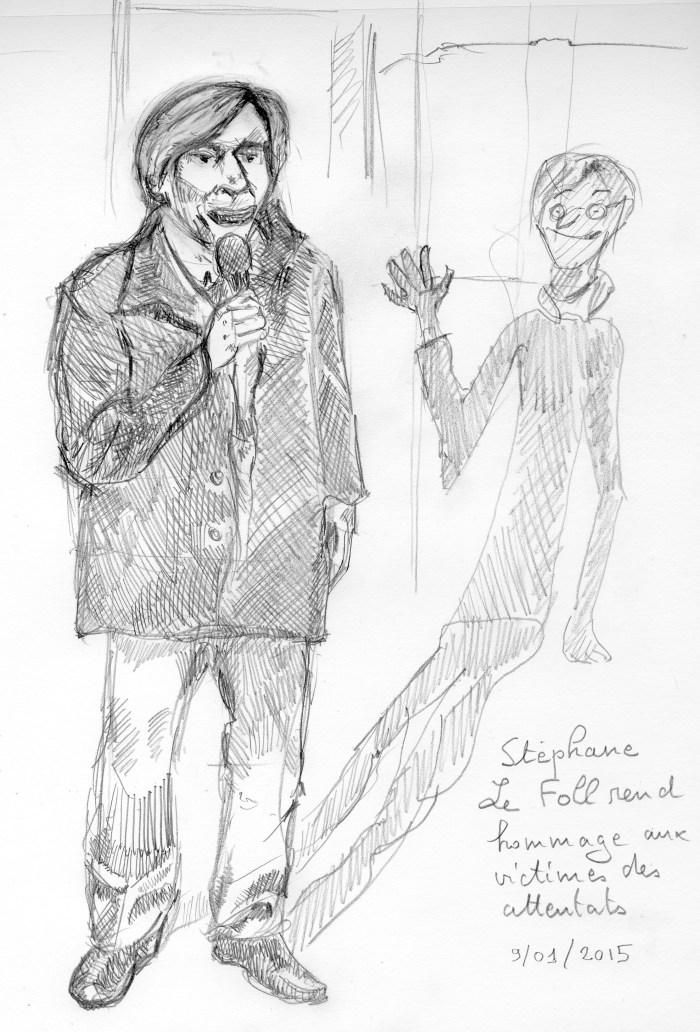 Stéphane
Le Foll rend
hommage aux
victimes des
attentats
9/01/2015